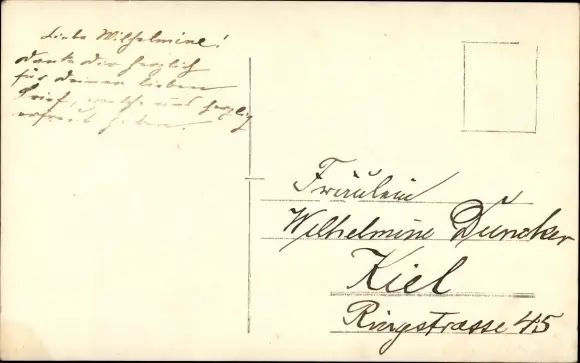 Liebe Wilhelmine!
danke dir herzlich
für deinen lieben
Brief, welche uns herzlich
erfreut haben.
Fräulein
Wilhelmine Duncker
Kiel
Ringstrasse 45